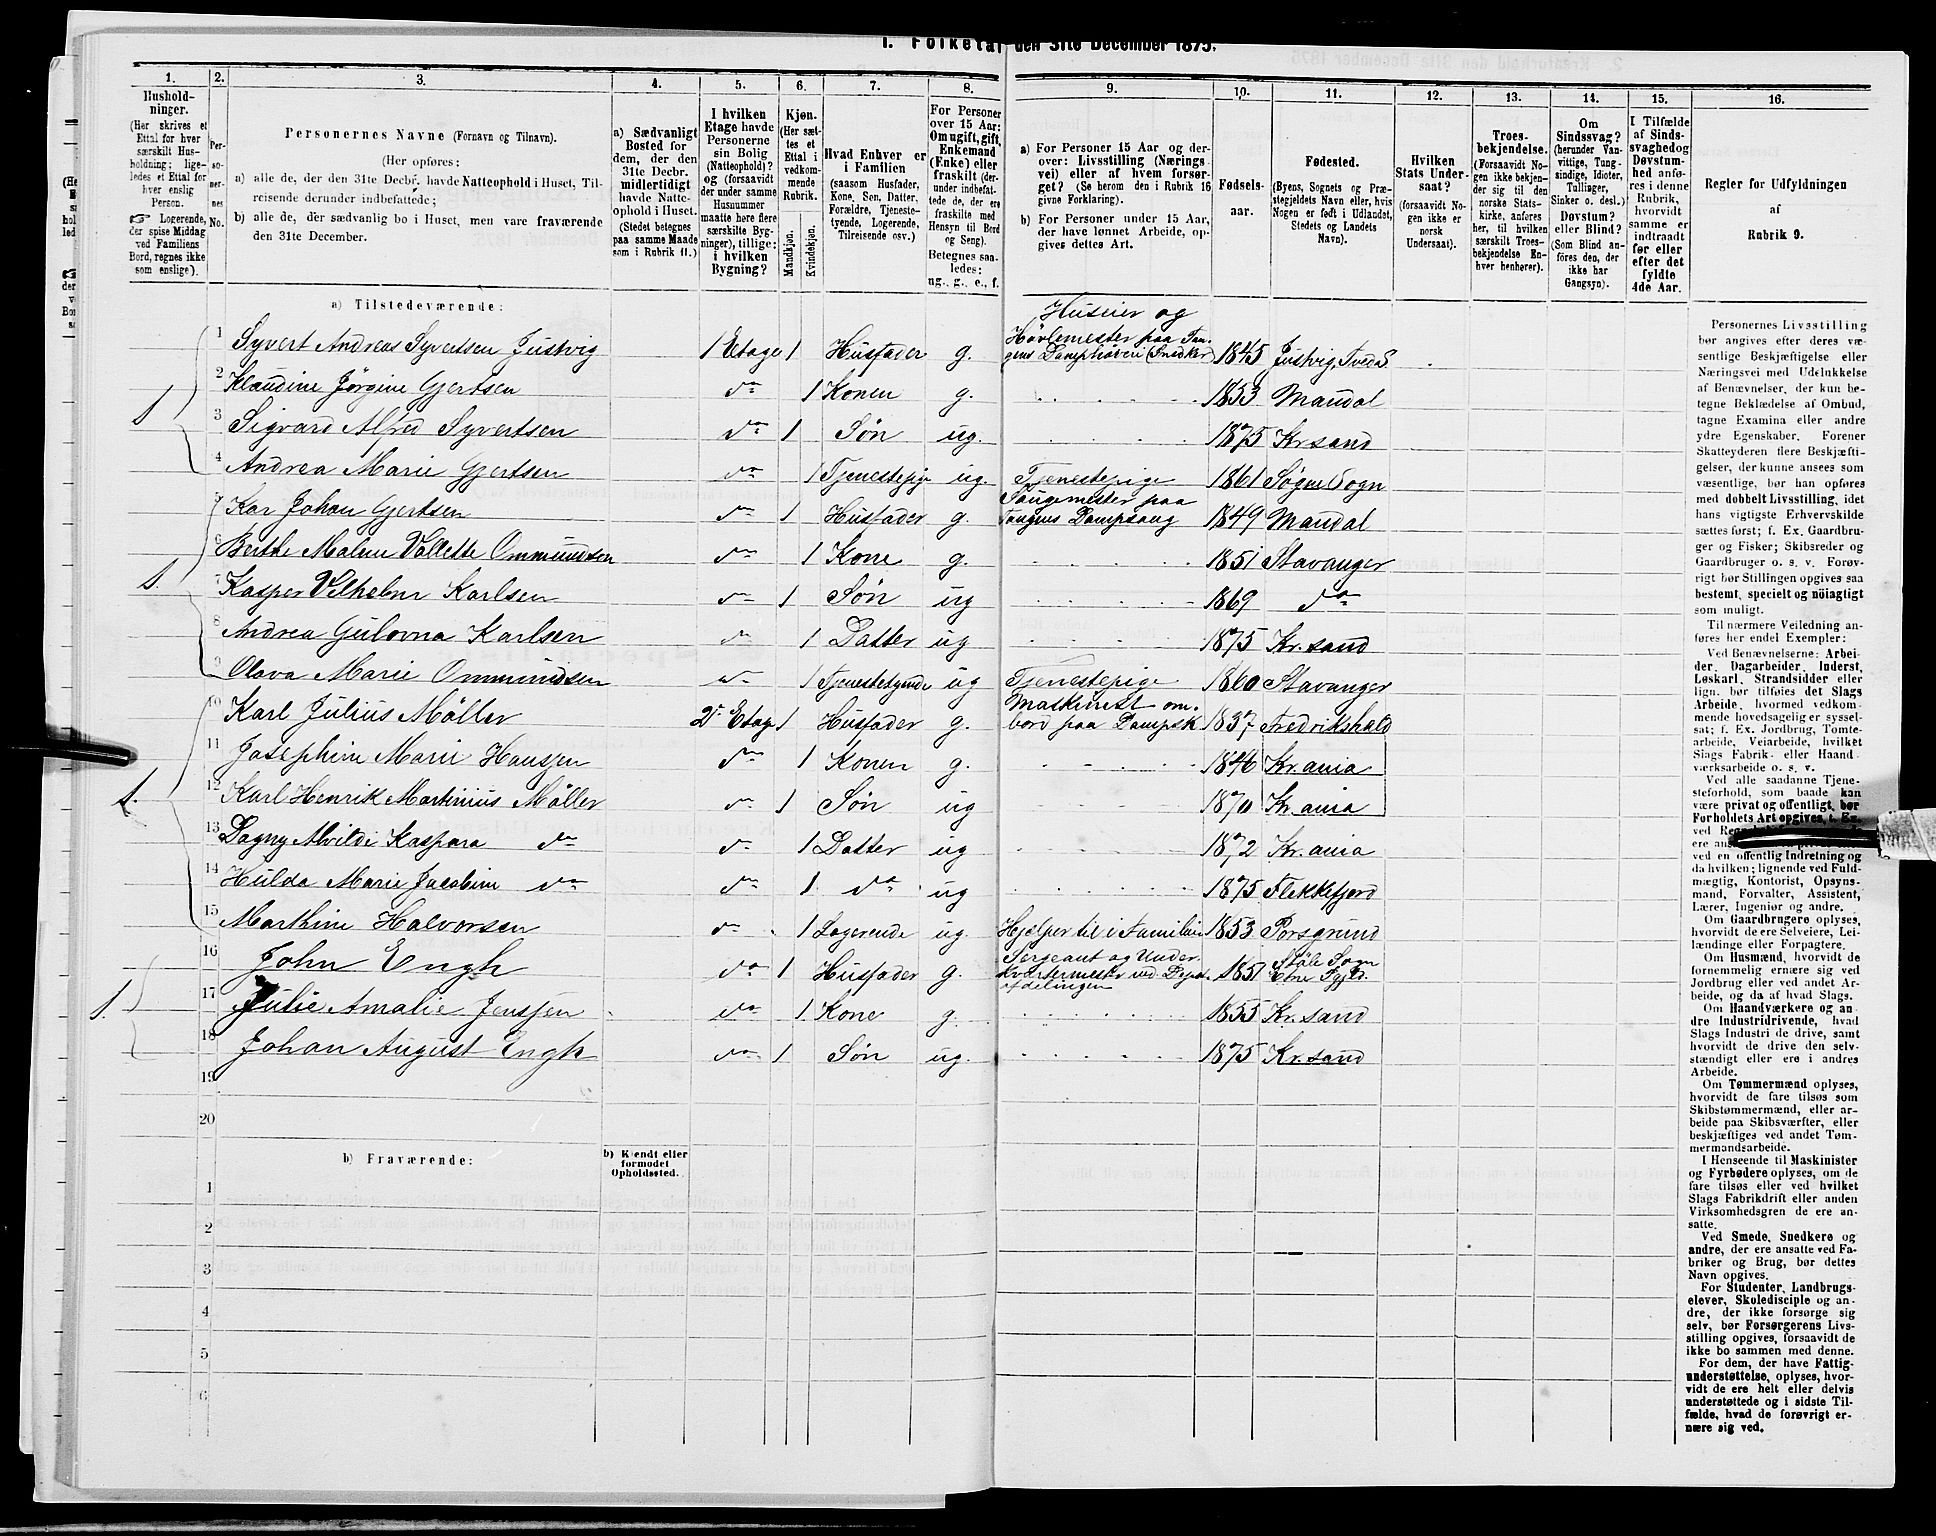 1. Folketal den 31te December 1875.
1. 2. 3. 4. 5. 6. 7. 8. 9. 10. 11. 12. 13. 14. 15. 16.
Hushold-
ninger.
(Her skrives et
Ettal for hver
særskilt Hus-
holdning; lige-
ledes et Ettal for
hver enslig
Person.
☞ Logerende,
der spise Middag
ved Familiens
Bord, regnes ikke
som enslige).
Per-
soner-
nes
No.
Personernes Navne (Fornavn og Tilnavn).
(Her opføres:
a) alle de, der den 31te Decbr. havde Natteophold i Huset, Til-
reisende derunder indbefattede;
b) alle de, der sædvanlig bo i Huset, men vare fraværende
den 31te December.
a) Sædvanligt
Bosted for
dem, der den
31te Decbr.
midlertidigt
havde Natte-
ophold i Huset.
(Stedet betegnes
paa samme Maade
som i Rubrik 11.)
I hvilken
Etage havde
Personerne
sin Bolig
(Natteophold)?
og (forsaavidt
der under samme
Husnummer
maatte høre flere
særskilte Byg-
ninger), tillige:
i hvilken
Bygning?
Kjøn.
(Her sæt-
tes et
Ettal i
vedkom-
mende
Rubrik.
Mandkjøn.
Kvindekjøn.
Hvad Enhver er
i Familien
(saasom Husfader,
Kone, Søn, Datter,
Forældre, Tjeneste-
tyende, Logerende,
Tilreisende osv.)
For Personer
over 15 Aar:
Om ugift, gift,
Enkemand
(Enke) eller
fraskilt (der-
under indbefat-
tede de, der ere
fraskilte med
Hensyn til Bord
og Seng).
Betegnes saa-
ledes:
ug., g., e., f.
a) For Personer 15 Aar og der-
over: Livsstilling (Nærings
vei) eller af hvem forsør-
get? (Se herom den i Rubrik 16
givne Forklaring).
b) For Personer under 15 Aar,
der have lønnet Arbeide, op-
gives dettes Art.
Fødsels-
aar.
Fødested.
(Byens, Sognets og Præ-
stegjeldets Navn eller, hvis
Nogen er født i Udlandet,
Stedets og Landets
Navn).
Hvilken
Stats Under-
saat?
(forsaavidt No-
gen ikke er
norsk
Undersaat).
Troes-
bekjendelse.
(Forsaavidt No-
gen ikke bekjen-
der sig til den
norske Stats-
kirke, anføres
her, til hvilken
særskilt Troes-
bekjendelse En-
hver henhører).
Om
Sindssvag?
(herunder Van-
vittige, Tung-
sindige, Idioter,
Tullinger,
Sinker o. desl.)
Døvstum?
eller Blind?
(Som Blind an-
føres den, der
ikke har
Gangsyn).
I Tilfælde
af Sinds-
svaghed og
Døvstum-
hed anfø-
res i denne
Rubrik,
hvorvidt
samme er
indtraadt
før eller
efter det
fyldte
4de Aar.
Regler for Udfyldningen
af
Rubrik 9.
a) Tilstedeværende:
1 Syvert Andreas Syvertsen Justvig 1 Etage 1 Husfader g. Huseier og Høvlemester paa Tangens Damphøveri (Snedker) 1845 Justvig, Tveds
2 Klaudine Jörgine Gjertsen do 1 Konen g. 1853 Mandal
3 Sigvard Alfred Syvertsen do 1 Søn ug. 1875 Kr.sand
4 Andrea Marie Gjertsen do 1 Tjenestepige ug. Tjenestepige 1861 Søgne Sogn
5 Kar Johan Gjertsen do 1 Husfader g. Saugemester paa Tangens Dampsaug 1849 Mandal
6 Berthe Malene Vollette Ommundsen do 1 Kone g. 1851 Stavanger
7 Kasper Vilhelm Karlsen do 1 Søn ug 1869 do
8 Andrea Gulovna Karlsen do 1 Datter ug 1875 Kr.sand
9 Olava Marie Ommundsen do 1 Tjenestetyende ug Tjenestepige 1860 Stavanger
10 Karl Julius Möller 2 Etage 1 Husfader g. Maskinist ombord paa Dampsk 1837 Fredrikshald
11 Josephine Marie Hansen do 1 Konen g. 1846 Kr.ania
12 Karl Henrik Martinius Möller do 1 Søn ug 1870 Kr.ania
13 Dagny Alvilde Kaspara do do 1 Datter ug 1872 Kr.ania
14 Hulda Marie Jacobine do do 1 do ug 1875 Flekkefjord
15 Marthine Halvorsen do 1 Logerende ug. Hjælper til i Familien 1853 Porsgrund
16 John Engh do 1 Husfader g. Sergeant og Underkvartermester ved Depotafdelingen 1851 Støle Sogn Etne
17 Julie Amalie Jenssen do 1 Kone g. 1855 Kr.sand
18 Johan August Engh do 1 Søn ug. 1875 Kr.sand
19
20
b) Fraværende:
b) Kjendt eller
formodet
Opholdssted.
1
2
3
4
5
6
Personernes Livsstilling
bør angives efter deres væ-
sentlige Beskjæftigelse eller
Næringsvei med Udelukkelse
af Benævnelser, der kun be-
tegne Beklædelse af Ombud,
tagne Examina eller andre
ydre Egenskaber. Forener
Skatteyderen flere Beskjæfti-
gelser, der kunne ansees som
væsentlige, bør han opføres
med dobbelt Livsstilling, idet
hans vigtigste Erhvervskilde
sættes først; f. Ex. Gaardbru-
ger og Fisker; Skibsreder og
Gaardbruger o. s. v. Forøv-
rigt bør Stillingen opgives saa
bestemt, specielt og nöiagtigt
som muligt.
Til nærmere Veiledning an-
føres her endel Exempler:
Ved Benævnelserne: Arbei-
der, Dagarbeider, Inderst,
Løskarl, Strandsidder eller
lign. bør tilføies det Slags
Arbeide, hvormed vedkom-
mende hovedsagelig er syssel-
sat; f. Ex. Jordbrug, Tomte-
arbeide, Veiarbeide, hvilket
Slags Fabrik- eller Haand-
værksarbeide o. s. v.
Ved alle saadanne Tjene-
steforhold, som baade kan
være privat og offentligt, bør
Forholdets Art opgives, t. Ex.
ved
ere
ved en offentlig Indretning og
da hvilken; lignende ved Fuld-
mægtig, Kontorist, Opsyns-
mand, Forvalter, Assistent,
Lærer, Ingeniør og andre.
Om Gaardbrugere oplyses,
hvorvidt de ere Selveiere, Lei-
lændinge eller Forpagtere.
Om Husmænd, hvorvidt de
fornemmelig ernære sig ved
Jordbrug eller ved andet Ar-
beide, og da af hvad Slags.
Om Haandværkere og an-
dre Industridrivende, hvad
Slags Industri de drive, samt
hvorvidt de drive den selv-
stændigt eller ere i andres
Arbeide.
Om Tømmermænd oplyses,
hvorvidt de fare tilsøs som
Skibstømmermænd, eller ar-
beide paa Skibsværfter, eller
beskjæftiges ved andet Tøm-
mermandsarbeide.
I Henseende til Maskinister
og Fyrbødere oplyses, om de
fare tilsøs eller ved hvilket
Slags Fabrikdrift eller anden
Virksomhedsgren de ere an-
satte.
Ved Smede, Snedkere og
andre, der ere ansatte ved Fa-
briker og Brug, bør dettes
Navn opgives.
For Studenter, Landbrugs-
elever, Skoledisciple og an-
dre, der ikke forsørge sig
selv, bør Forsørgerens Livs-
stilling opgives, forsaavidt de
ikke bo sammen med denne.
For dem, der have Fattig-
understøttelse, oplyses, hvor-
vidt de ere helt eller delvis
understøttede og i sidste Til-
fælde, hvad de forøvrigt er-
nære sig ved.